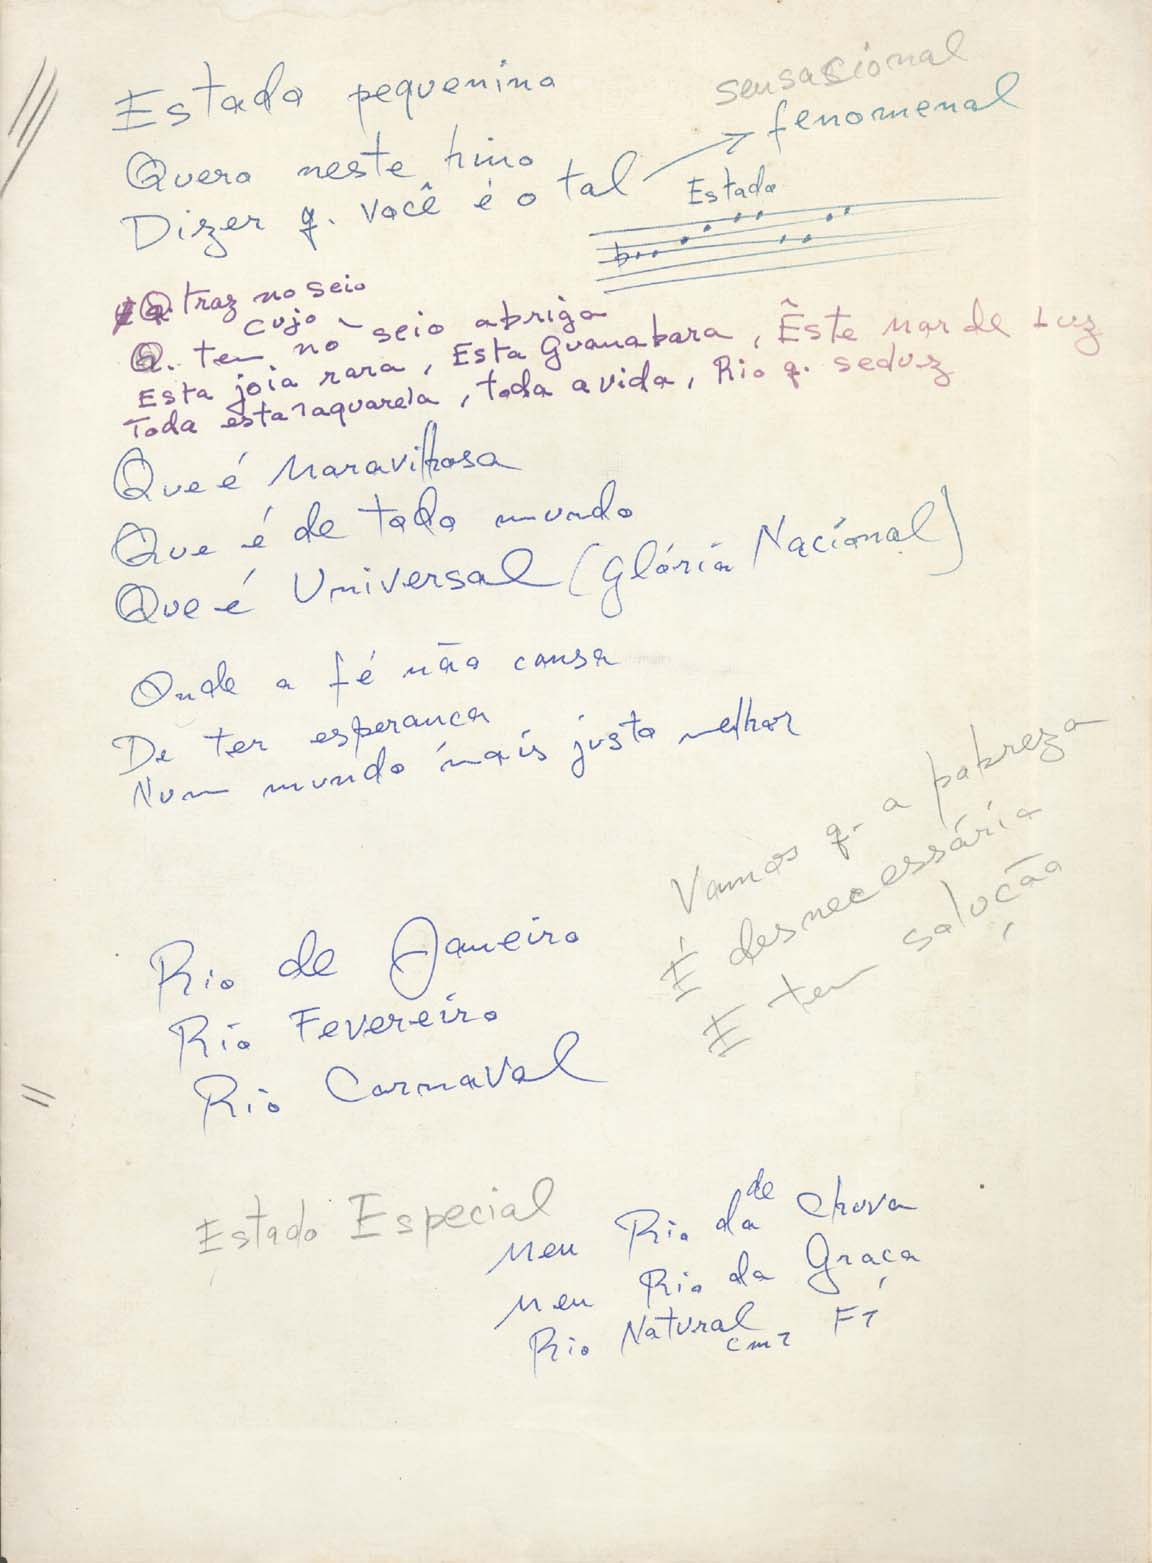 Estado pequenino
sensacional
Quero neste hino
fenomenal
Dizer q. você é o tal
Estado
Q. traz no seio
cujo
Q. tem no seio abriga
Esta joia rara, Esta Guanabara, Êste Mar de Luz
Toda esta aquarela, toda a vida, Rio q. seduz
Que é Maravilhosa
Que é de todo mundo
Que é Universal (Glória Nacional)
Onde a fé não cansa
De ter esperança
Num mundo mais justo melhor
Vamos q. a pobreza
É desnecessária
E tem solução
Rio de Janeiro
Rio Fevereiro
Rio Carnaval
Estado Especial
de
Meu Rio da chuva
Meu Rio da Graça
Rio Natural
Cm7 F7